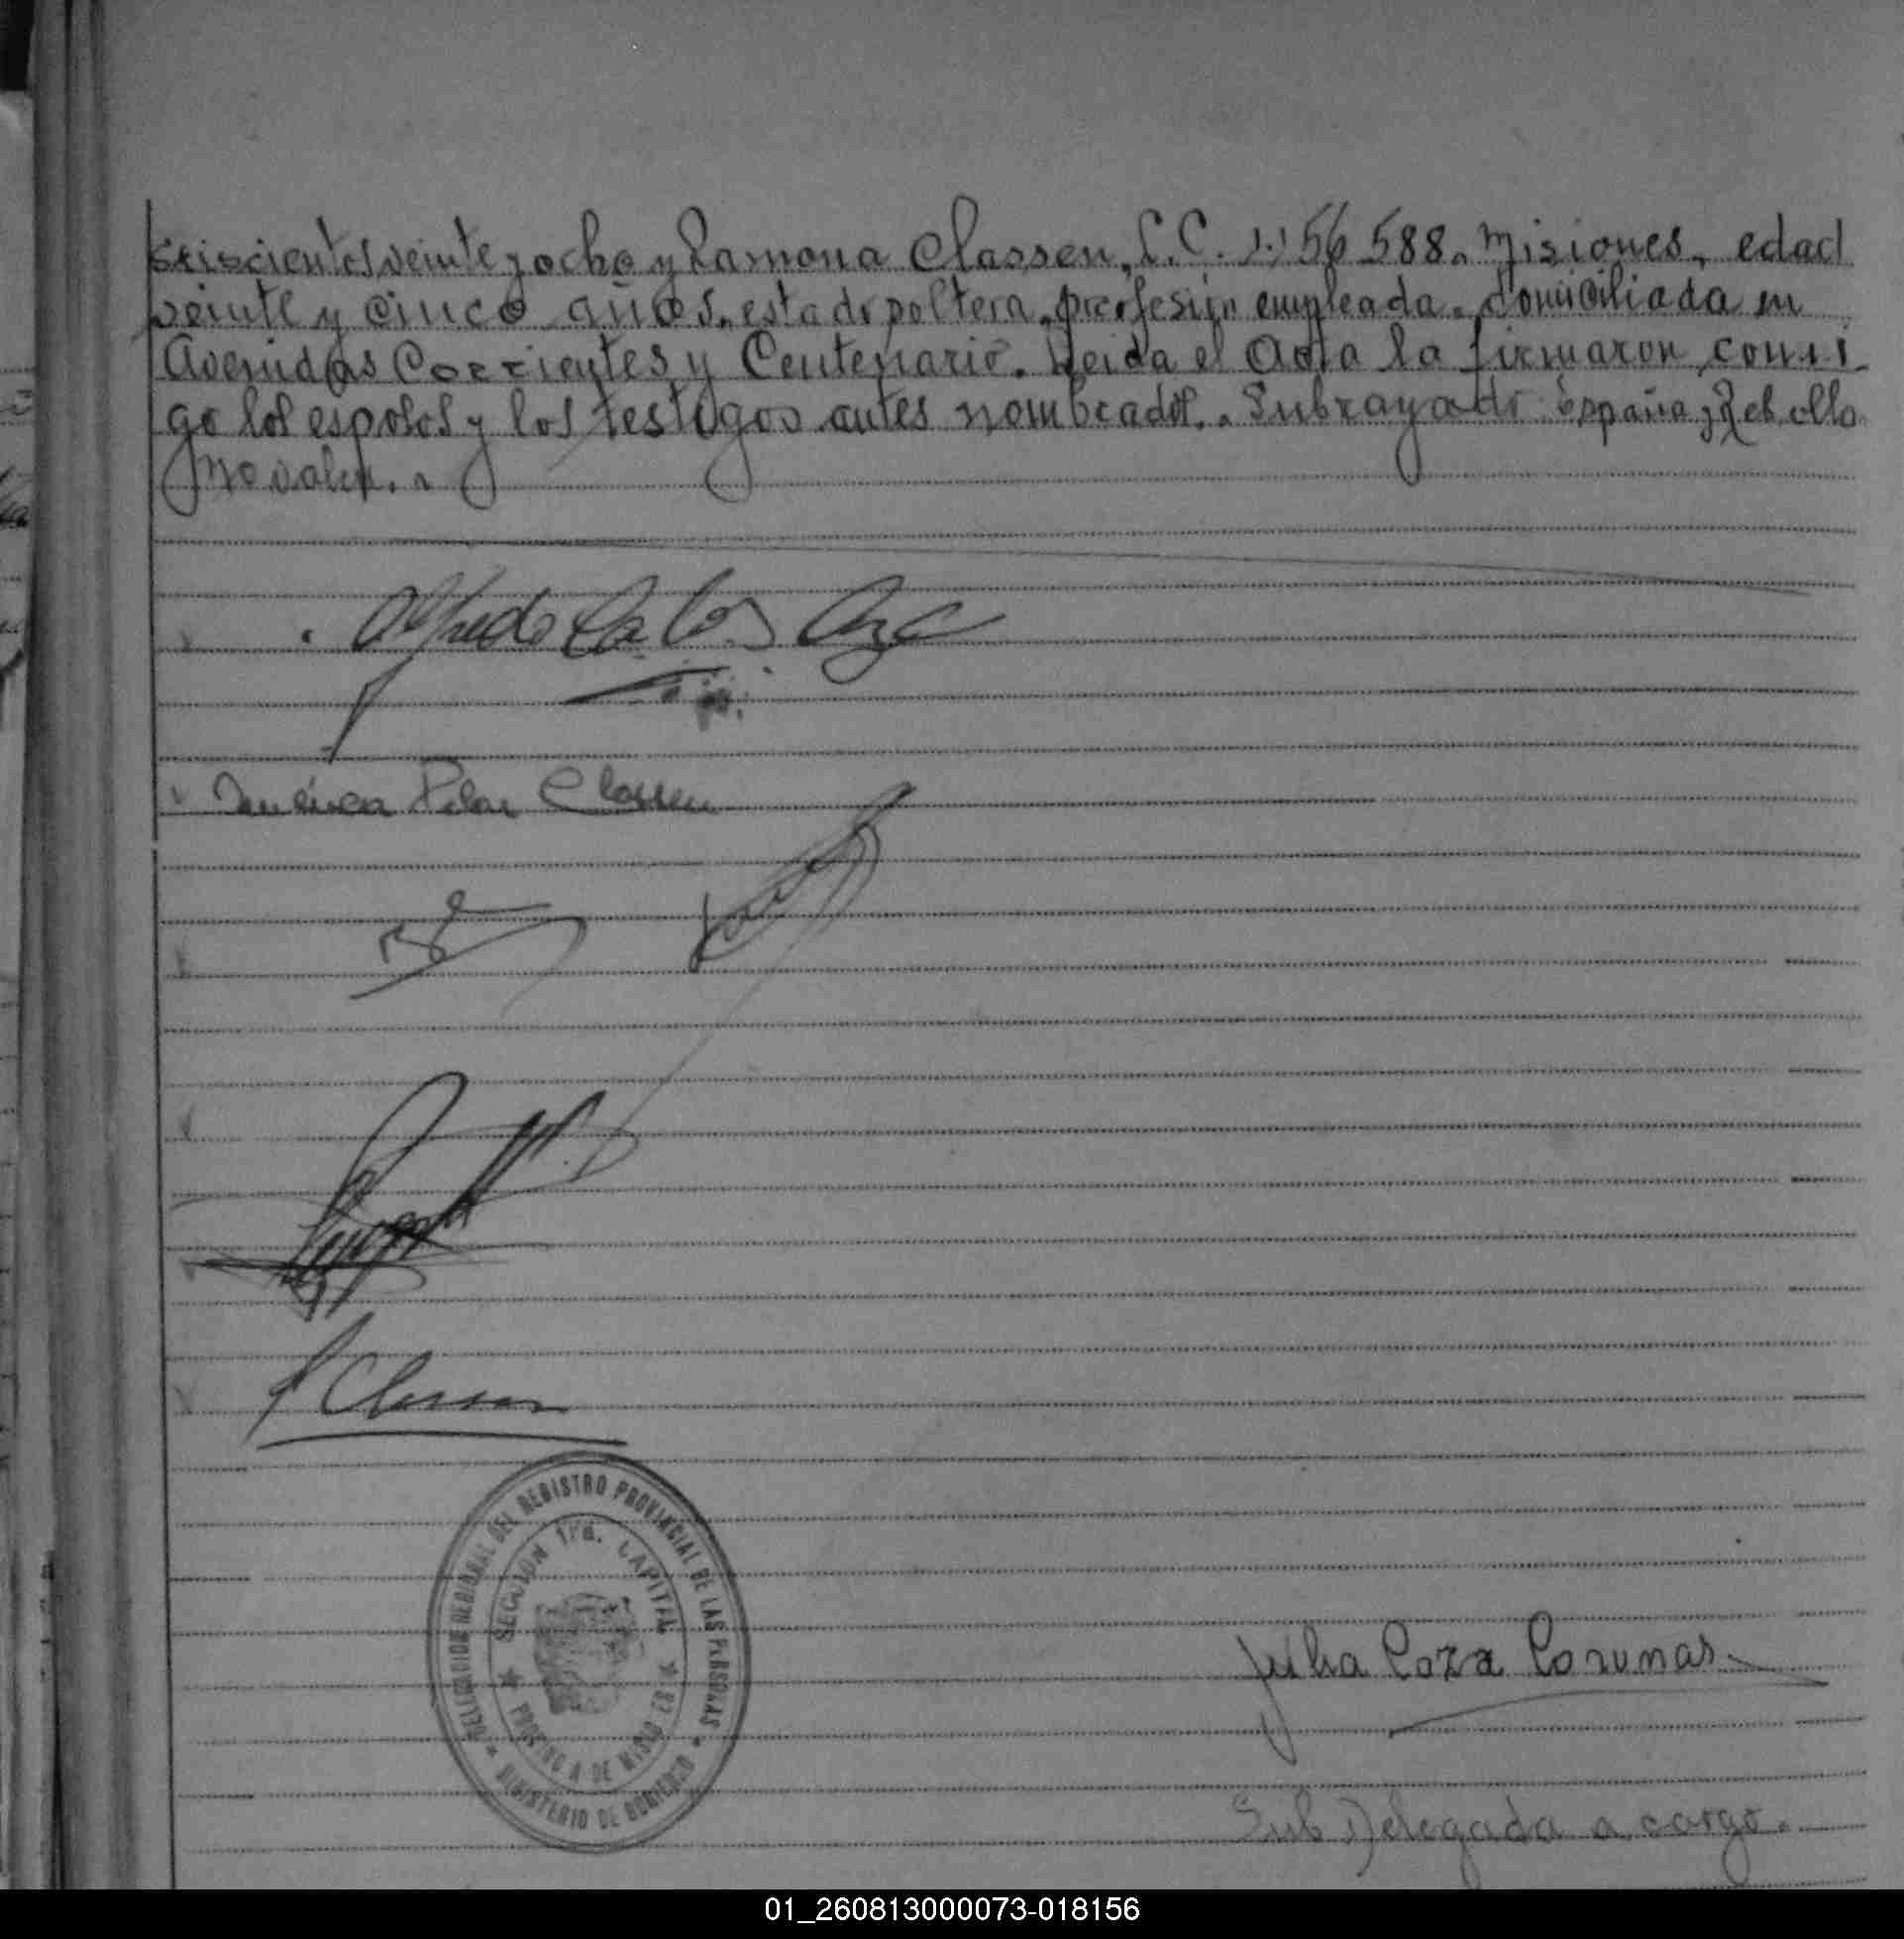 seiscientos veinte y ocho y Ramona Classen, L.C. 1.156.588. Misiones, edad
veinte y cinco años, estado soltera, profesión empleada. domiciliada en
Avenidas Corrientes y Centenario. Leida el Acta la firmaron conmi-
go los esposos y los testigos antes nombrados. Subrayado: España y Rebollo
no valen.
Alfredo Carlos
América Pilar Classen
Classen
DELEGACION REGIONAL DEL REGISTRO PROVINCIAL DE LAS PERSONAS
SECCION 1ra. CAPITAL
PROVINCIA DE MISIONES
MINISTERIO DE GOBIERNO
Julia Coza
Sub Delegada a cargo.
01_260813000073-018156